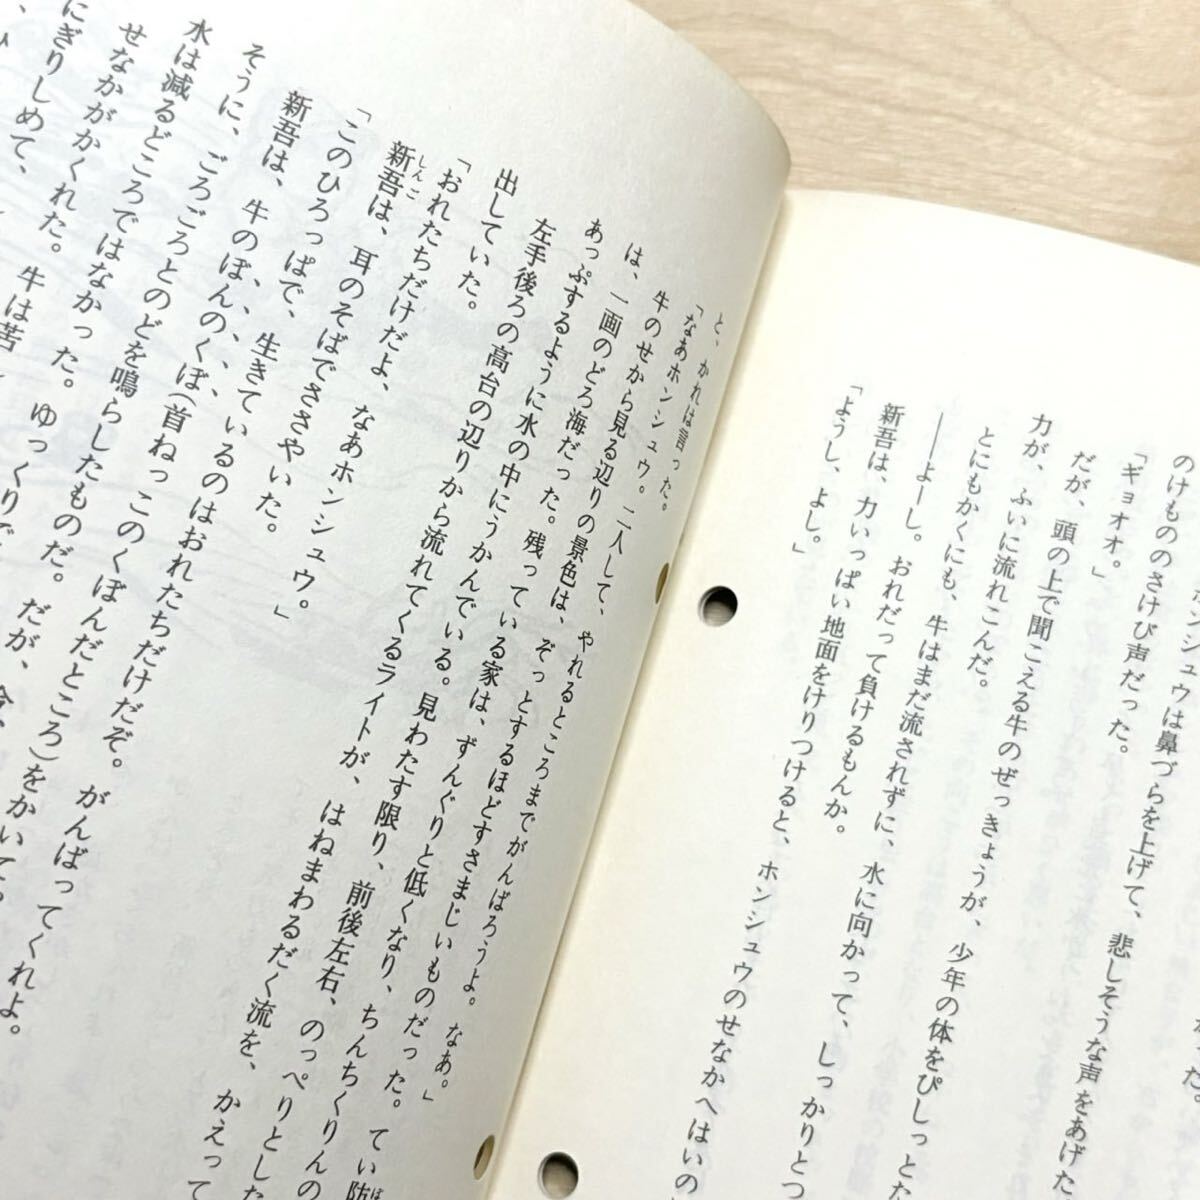 ンシュウは鼻づらを上げて、悲しそうな声をあげた
のけもののさけび声だった。
「ギョオオ。」
だが、頭の上で聞こえる牛のぜっきょうが、少年の体をぴしっとた
力が、ふいに流れこんだ。
とにもかくにも、牛はまだ流されずに、水に向かって、しっかりとつ
――よーし。おれだって負けるもんか。
新吾は、力いっぱい地面をけりつけると、ホンシュウのせなかへはいの
「ようし、よし。」
と、かれは言った。
「なあホンシュウ。二人して、やれるところまでがんばろうよ。なあ。」
牛のせから見る辺りの景色は、ぞっとするほどすさまじいものだった。てい防
は、一画のどろ海だった。残っている家は、ずんぐりと低くなり、ちんちくりんの
あっぷするように水の中にうかんでいる。見わたす限り、前後左右、のっぺりとした
左手後ろの高台の辺りから流れてくるライトが、はねまわるだく流を、かえって
出していた。
「おれたちだけだよ、なあホンシュウ。」
新吾は、耳のそばでささやいた。
「このひろっぱで、生きているのはおれたちだけだぞ。がんばってくれよ。
新吾は、牛のぼんのくぼ(首ねっこのくぼんだところ)をかいて
そうに、ごろごろとのどを鳴らしたものだ。だが、
水は減るどころではなかった。ゆっくりで
せなかがかくれた。牛は苦
にぎりしめて、